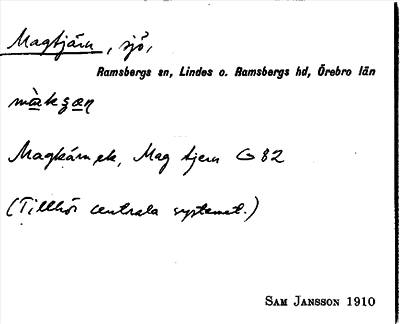 Magtjärn, sjö,
Ramsbergs sn, Lindes o. Ramsbergs hd, Örebro län
màkçæ̀n
Magkärn, ek, Mag tjern G 82
(Tillhör centrala systemet.)
SAM JANSSON 1910